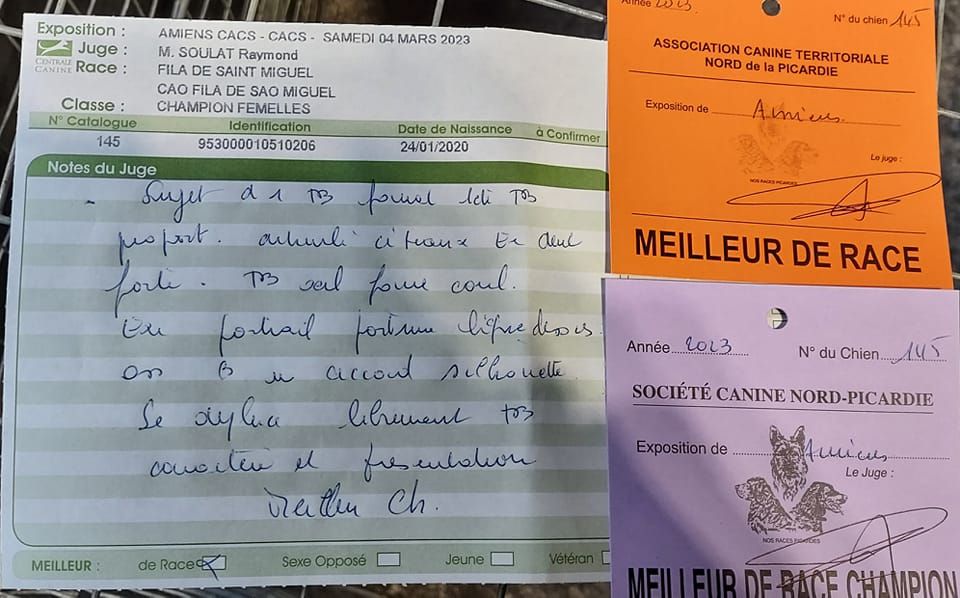 Exposition : AMIENS CACS - CACS - SAMEDI 04 MARS 2023
CENTRALE CANINE
Juge : M. SOULAT Raymond
Race : FILA DE SAINT MIGUEL
CAO FILA DE SAO MIGUEL
Classe : CHAMPION FEMELLES
N° Catalogue Identification Date de Naissance à Confirmer
145 953000010510206 24/01/2020
Notes du Juge
Sujet d 1 TB format tête TB
proport. Ex
forte. TB oeil forme coul.
Ex poitrail
oss B silhouette
Se déplace librement TB
caractère et présentation
Meilleur Ch.
MEILLEUR : de Race Sexe Opposé Jeune Vétéran
Année 2023 N° du chien 145
ASSOCIATION CANINE TERRITORIALE
NORD de la PICARDIE
Exposition de Amiens
Le juge :
NOS RACES PICARDES
MEILLEUR DE RACE
Année 2023 N° du Chien 145
SOCIÉTÉ CANINE NORD-PICARDIE
Exposition de Amiens
Le Juge :
NOS RACES PICARDES
MEILLEUR DE RACE CHAMPION